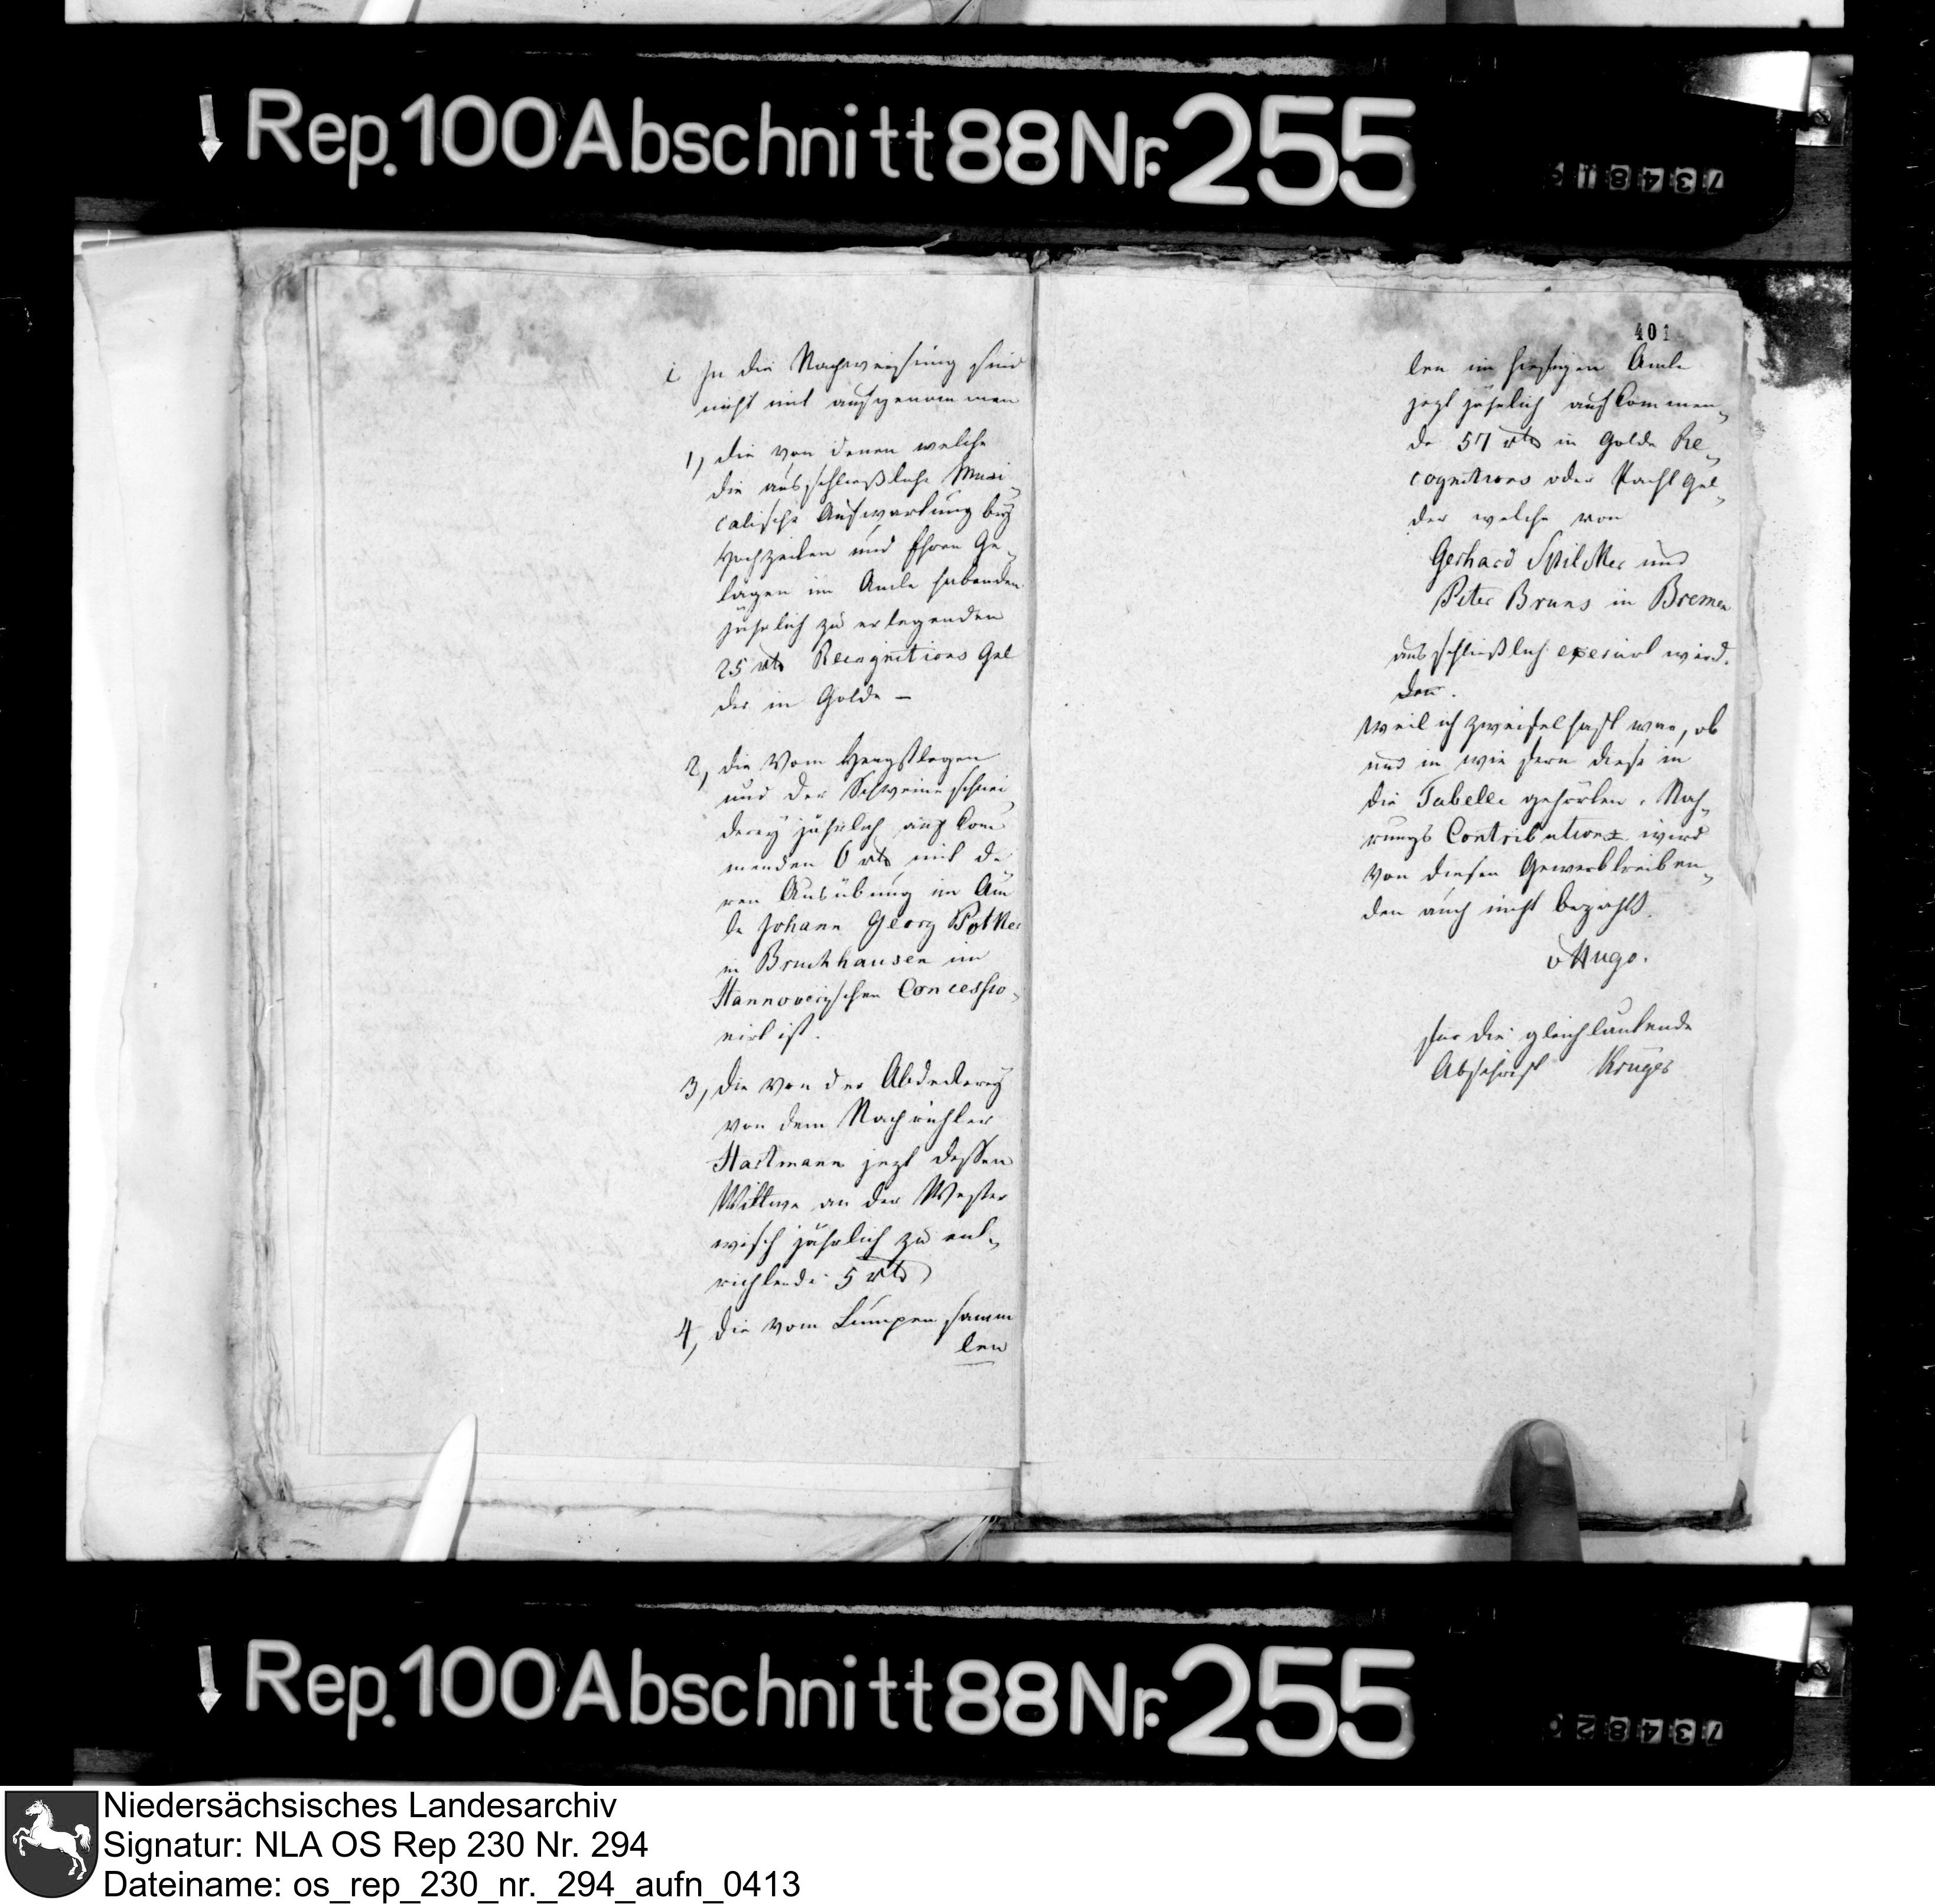 Rep. 100 Abschnitt 88 Nr. 255
i In die Nachweisung sind
nicht mit aufgenommen
1, die von denen welche
die ausschließliche Musi„
calische Aufwartung bey
Hochzeiten und Ehren Ge„
lagen im Amte habenden
jährlich zu erlegenden
25 rt Recognitions Gel
der in Golde –
2, die vom Hengstlegen
und der Schweineschnei„
derey jährlich auf kom
menden 6 rt mit de„
ren Ausübung im Am
te Johann Georg
in Bruchhausen im
Hannoverischen Concessio„
nirt ist.
3, die von der Abdeckerey
von dem Nachrichter
Hartmann jezt dessen
Wittwe an der Wester
wisch jährlich zu ent„
richtende 5 rt
4, die vom Lumpen samm
len
401
len im hiesigen Amte
jezt jährlich aufkommen„
de 57 rt in Golde Re„
cognitions oder Pacht Gel„
der welche von
Gerhard Spilker und
Peter Bruns in Bremen
ausschließlich exerirt wird.
den.
Weil ich zweifelhaft war, ob
und in wie fern diese in
die Tabelle gehörten. Nah„
rungs Contribution wird
von diesen Gewerbtreiben„
den auch nicht bezahlt.
v Hugo.
für die gleichlautende
Abschrift Krüger
Rep. 100 Abschnitt 88 Nr. 255
Niedersächsisches Landesarchiv
Signatur: NLA OS Rep 230 Nr. 294
Dateiname: os_rep_230_nr._294_aufn_0413